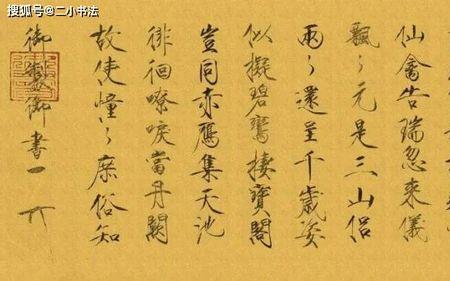 搜狐号@二小书法
仙禽告瑞忽來儀
飄〻元是三山侶
兩〻還呈千歲姿
似擬碧鸞棲寶閣
豈同赤鴈集天池
徘徊嘹唳當丹闕
故使憧〻庶俗知
御製御書